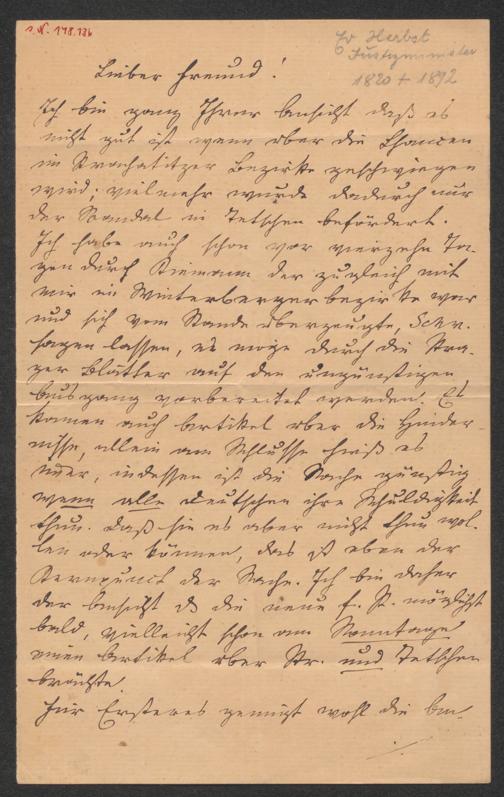 I. N. 178.136
Ed Herbst
Justizminister
1820 + 1892
Lieber Freund!
Ich bin ganz Ihrer Ansicht daß es
nicht gut ist wenn über die Chancen
im Prachatitzer Bezirke geschwiegen
wird; vielmehr wurde dadurch nur
der Skandal in Tetschen befördert.
Ich habe auch schon vor vierzehn Ta-
gen durch der zugleich mit
mir im Winterbergerbezirke war
und sich vom Stande überzeugte,
sagen lassen, es möge durch die Pra-
ger Blätter auf den ungünstigen
Ausgang vorbereitet werden. Es
kamen auch Artikel über die Hinder-
nisse, allein am Schlusse hieß es
immer, indessen ist die Sache günstig
wenn alle Deutschen ihre Schuldigkeit
thun. Daß sie es aber nicht thun wol-
len oder können, das ist eben der
Kernpunct der Sache. Ich bin daher
der Ansicht daß die neue f. P. möglichst
bald, vielleicht schon am Sonntage
einen Artikel über Pr. und Tetschen
brächte.
Für Ersteres genügt wohl die An-